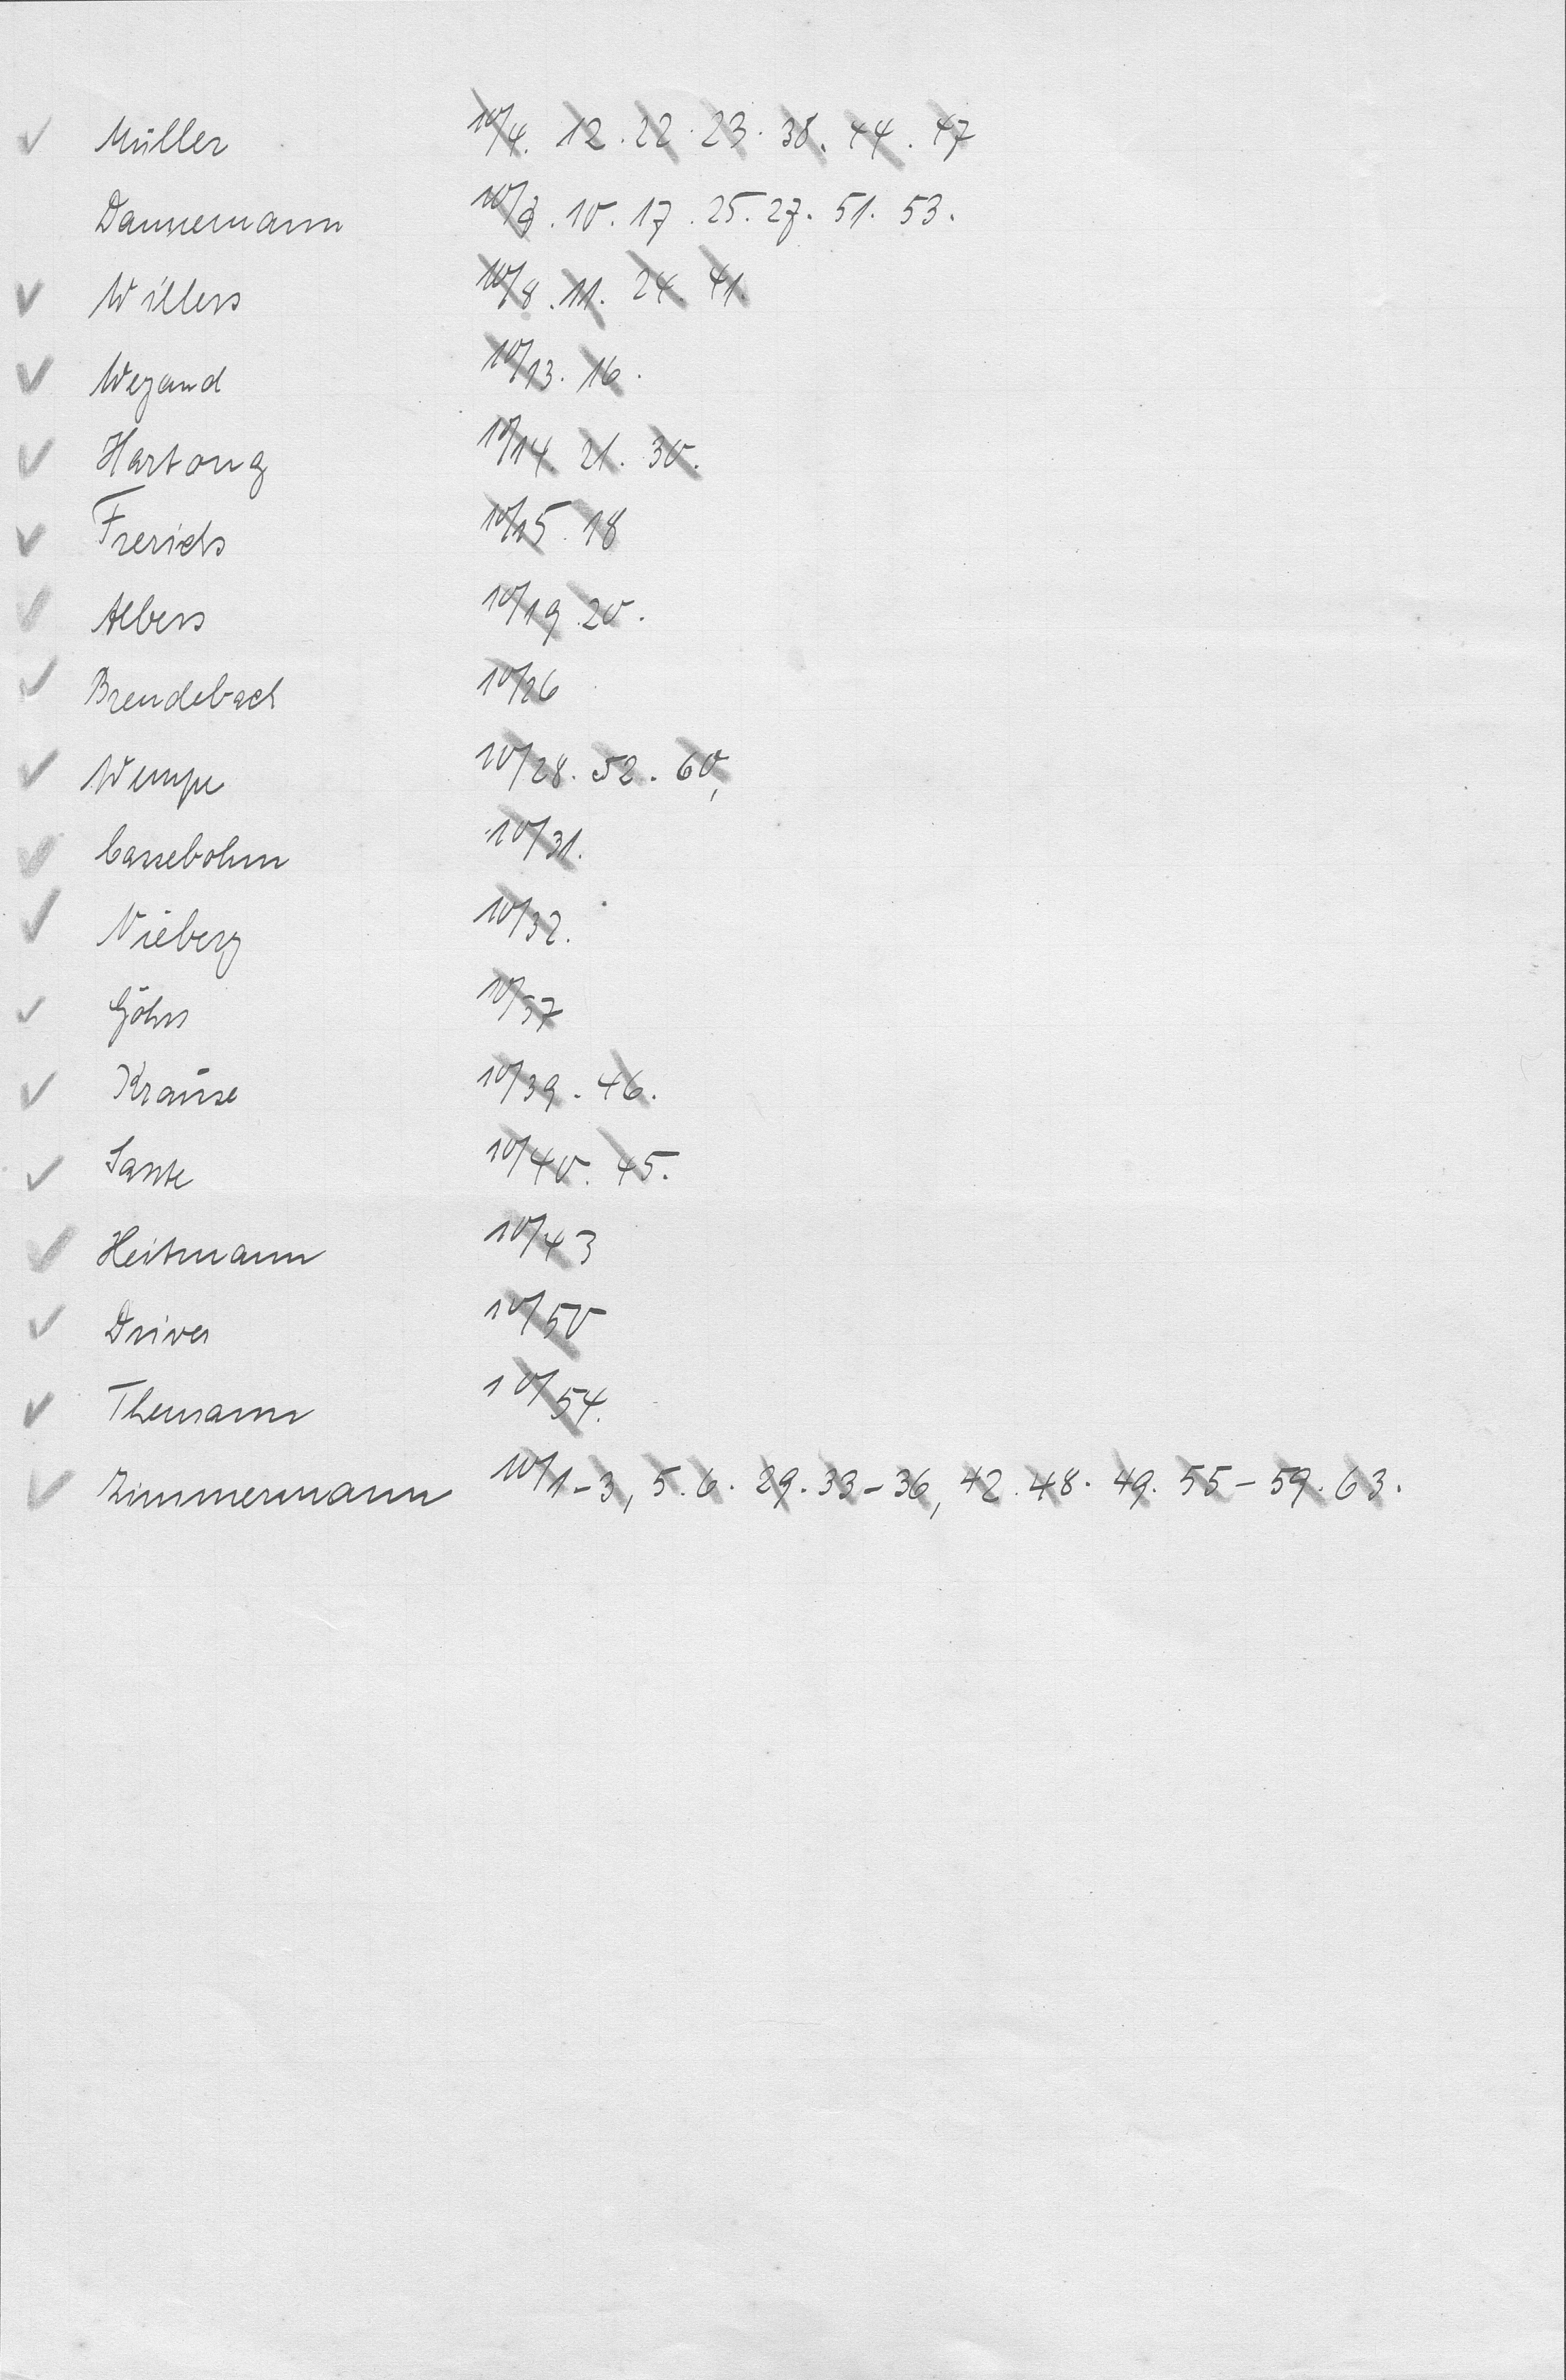 ✓ Müller 10/4. 12. 22. 23. 38. 44. 47
Dannemann 10/9. 10. 17. 25. 27. 51. 53.
✓ Willers 10/8. 11. 24. 41.
✓ Weyand 10/13. 16.
✓ Hartong 10/14. 21. 30.
✓ Frerichs 10/15. 18
✓ Albers 10/19. 20.
✓ Brendebach 10/26
✓ Wempe 10/28. 52. 60,
✓ Cassebohm 10/31.
✓ Nieberg 10/32.
✓ Göhrs 10/37
✓ Krause 10/39. 46.
✓ Sante 10/40. 45.
✓ Heitmann 10/43
✓ Driver 10/50
✓ Themann 10/54.
✓ Zimmermann 10/1-3, 5. 6. 29. 33-36, 42. 48. 49. 55-59. 63.